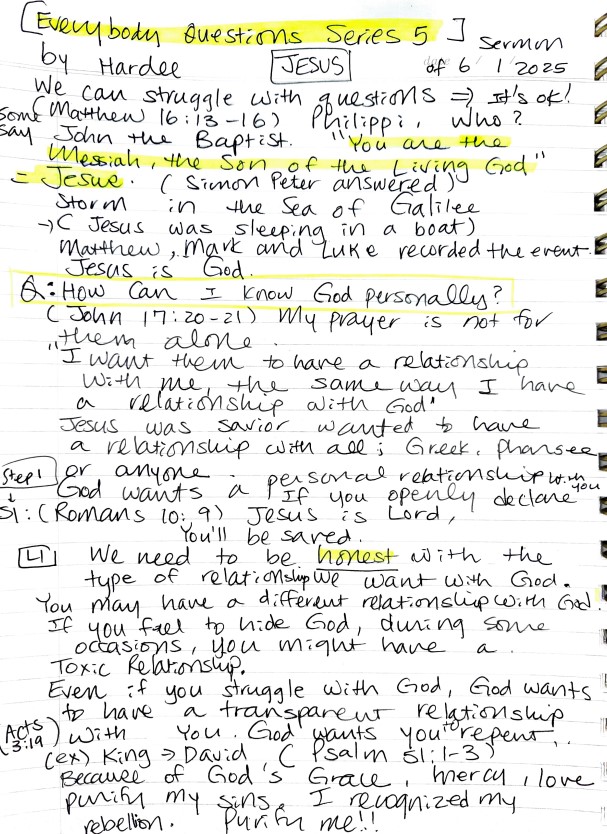 [Everybody Questions Series 5]
Sermon
by Hardee JESUS of 6/1/2025
We can struggle with questions ⇒ It's ok!
(Matthew 16:13-16) Philippi, who?
some say John the Baptist. "You are the
Messiah, the Son of the Living God"
= Jesus. (Simon Peter answered)
Storm in the Sea of Galilee
→( Jesus was sleeping in a boat)
Matthew, Mark and Luke recorded the event.
Jesus is God.
Q: How Can I know God personally?
(John 17:20-21) My prayer is not for
them alone.
"I want them to have a relationship
with me, the same way I have
a relationship with God"
Jesus was savior wanted to have
a relationship with all; Greek, pharisee
or anyone.
Step 1 God wants a personal relationship with you
↓ If you openly declare
S1: (Romans 10:9) Jesus is Lord,
You'll be saved.
L1 We need to be honest with the
type of relationship we want with God.
You may have a different relationship with God.
If you feel to hide God, during some
occasions, you might have a
Toxic Relationship.
Even if you struggle with God, God wants
to have a transparent relationship
(Acts 3:19) with you. God wants you to repent..
(ex) King → David, (Psalm 51:1-3)
Because of God's Grace, mercy, love
purify my sins. I recognized my
rebellion. Purify me!!